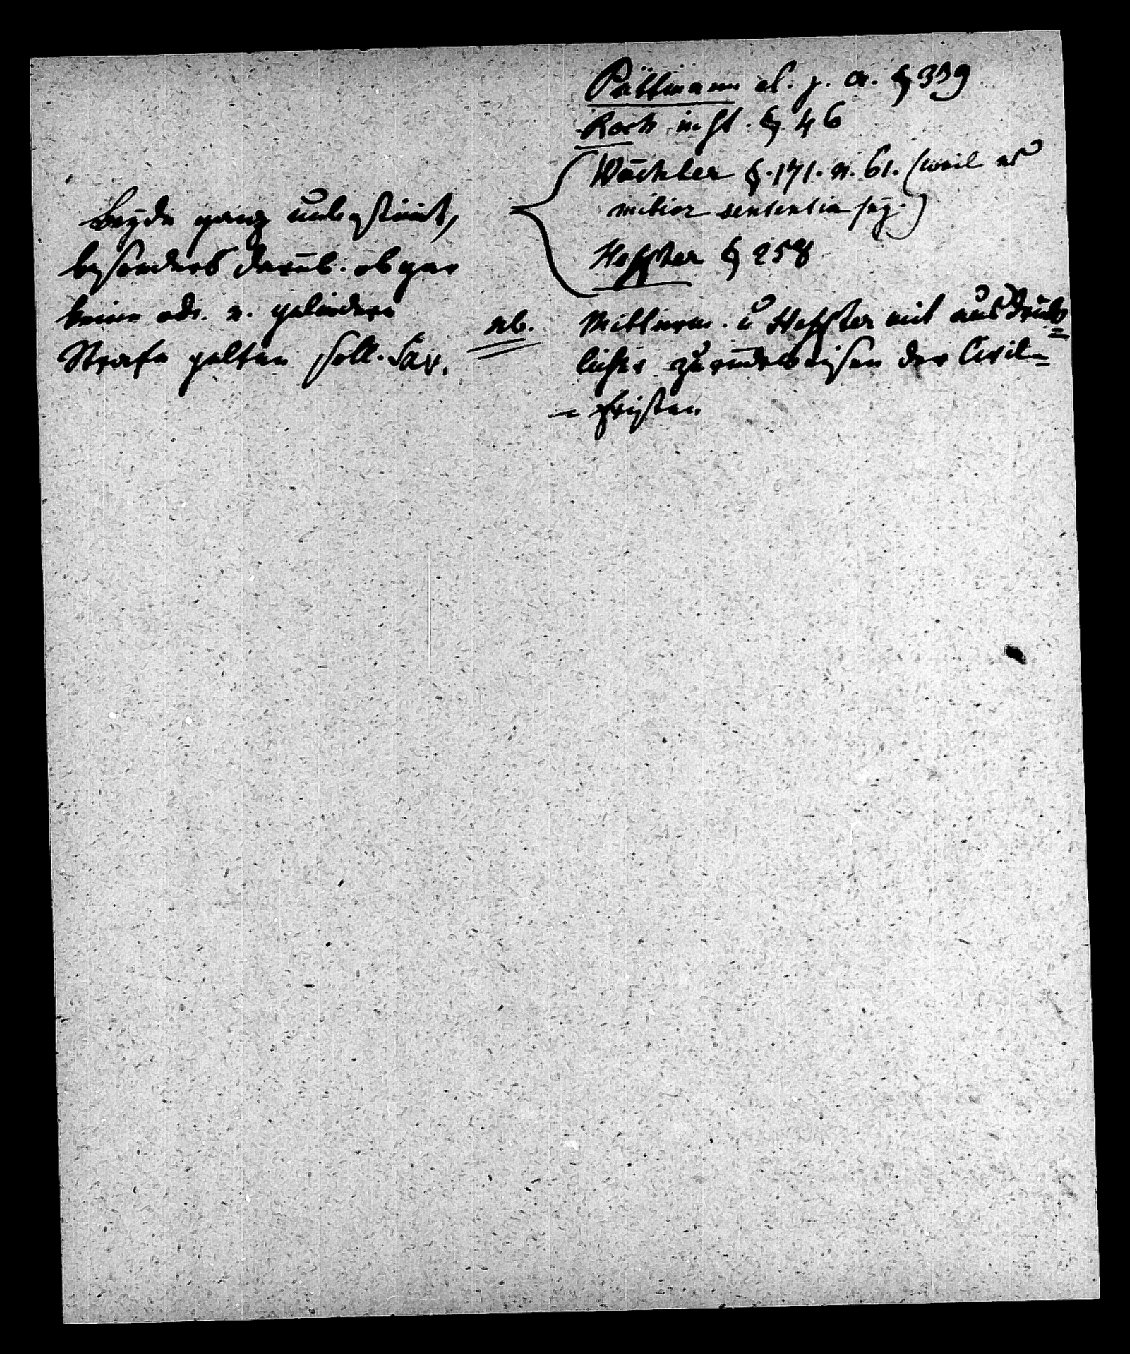 Püttmann el. j. cr. § 339
Koch inst. § 46
Wächter §. 171. n. 61. (weil es
mitior sententia sey.)
Heffter § 258
Beyde ganz unbestimt,
besonders darüb. ob gar
keine od. e. gelindere
Strafe gelten soll. Sav.
nb. Mitterm. u Heffter mit ausdrück=
licher zurückweisen der Civil=
= fristen